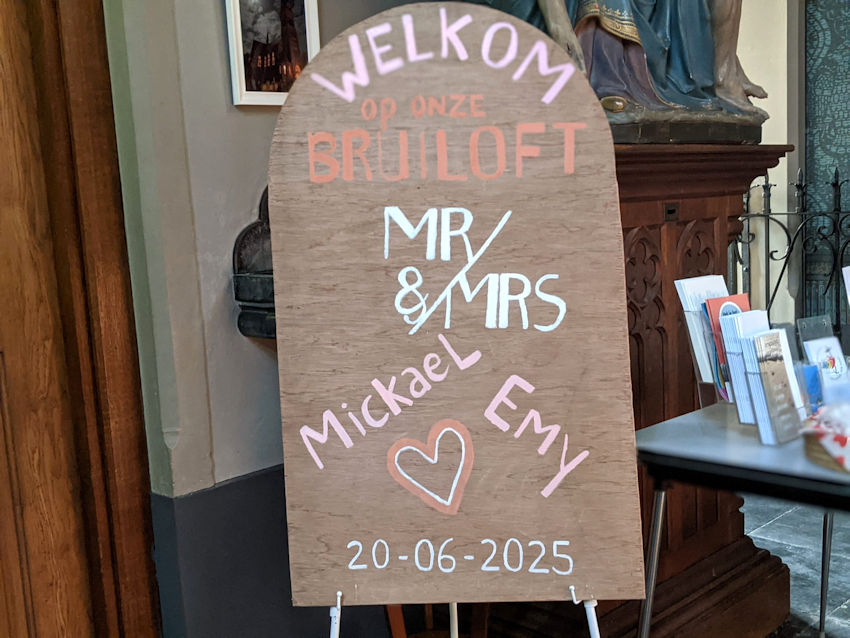 WELKOM
op ONZE
BRUILOFT
MR
& MRS
Mickael Emy
20-06-2025